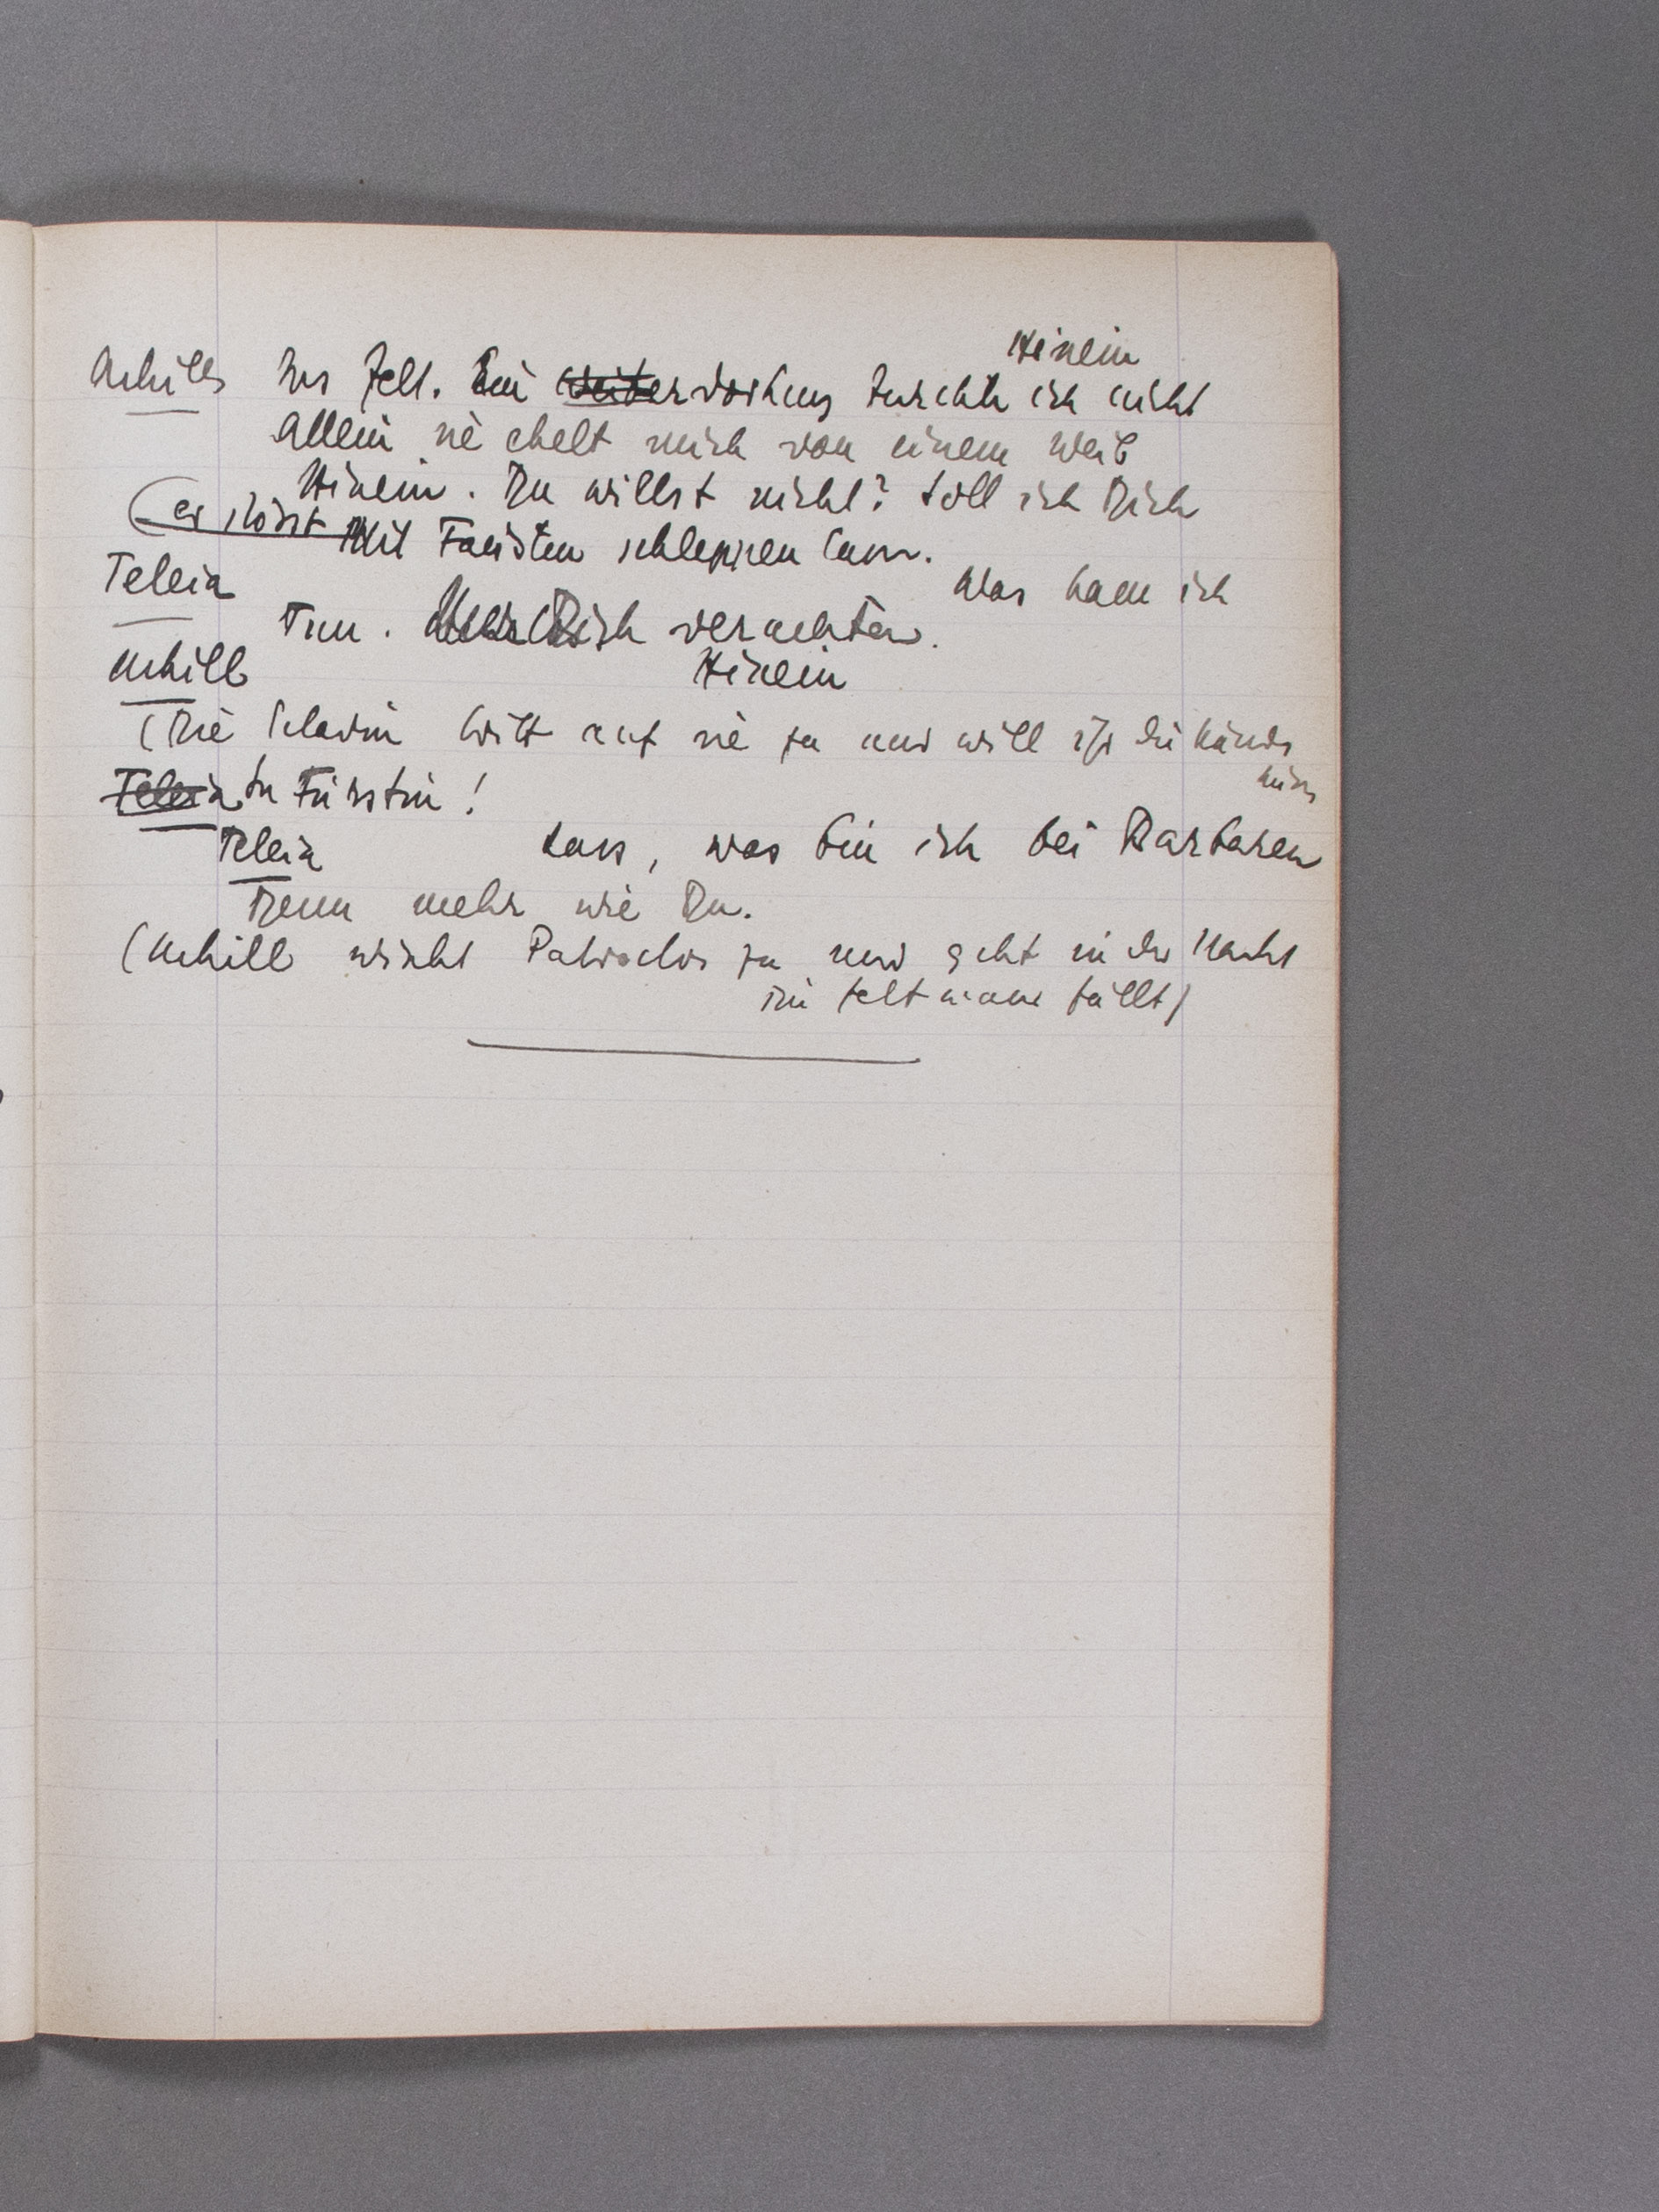 Hinein
Achilles Ins Zelt. Ein weiter fürchte ich nicht
Allein sie ekelt mich von einem Weib
Hinein. Du willst nicht? Soll ich Dich
(er stösst Mit Fäusten schleppen lassen.
Teleia Was kann ich
Tun. Dich verachten.
Achill Hinein
(Die Sclavin tritt auf sie zu und will ihr die Hände
küssen
Teleia Fürstin!
Teleia Lass, was bin ich bei Barbaren
Denn mehr wie Du.
(Achill winkt Patroclos zu und geht in die Nacht
Die fällt)